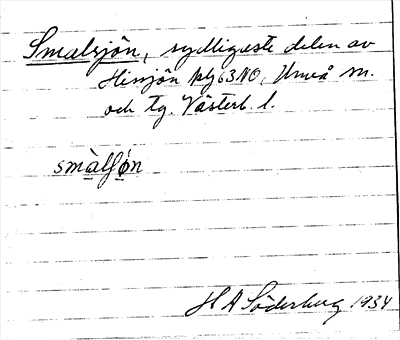 Smalsjön, sydligaste delen av
Hissjön bl 63NO, Umeå sn.
och tg. Västerb. l.
smàlʃø̀n
H A Söderberg 1934